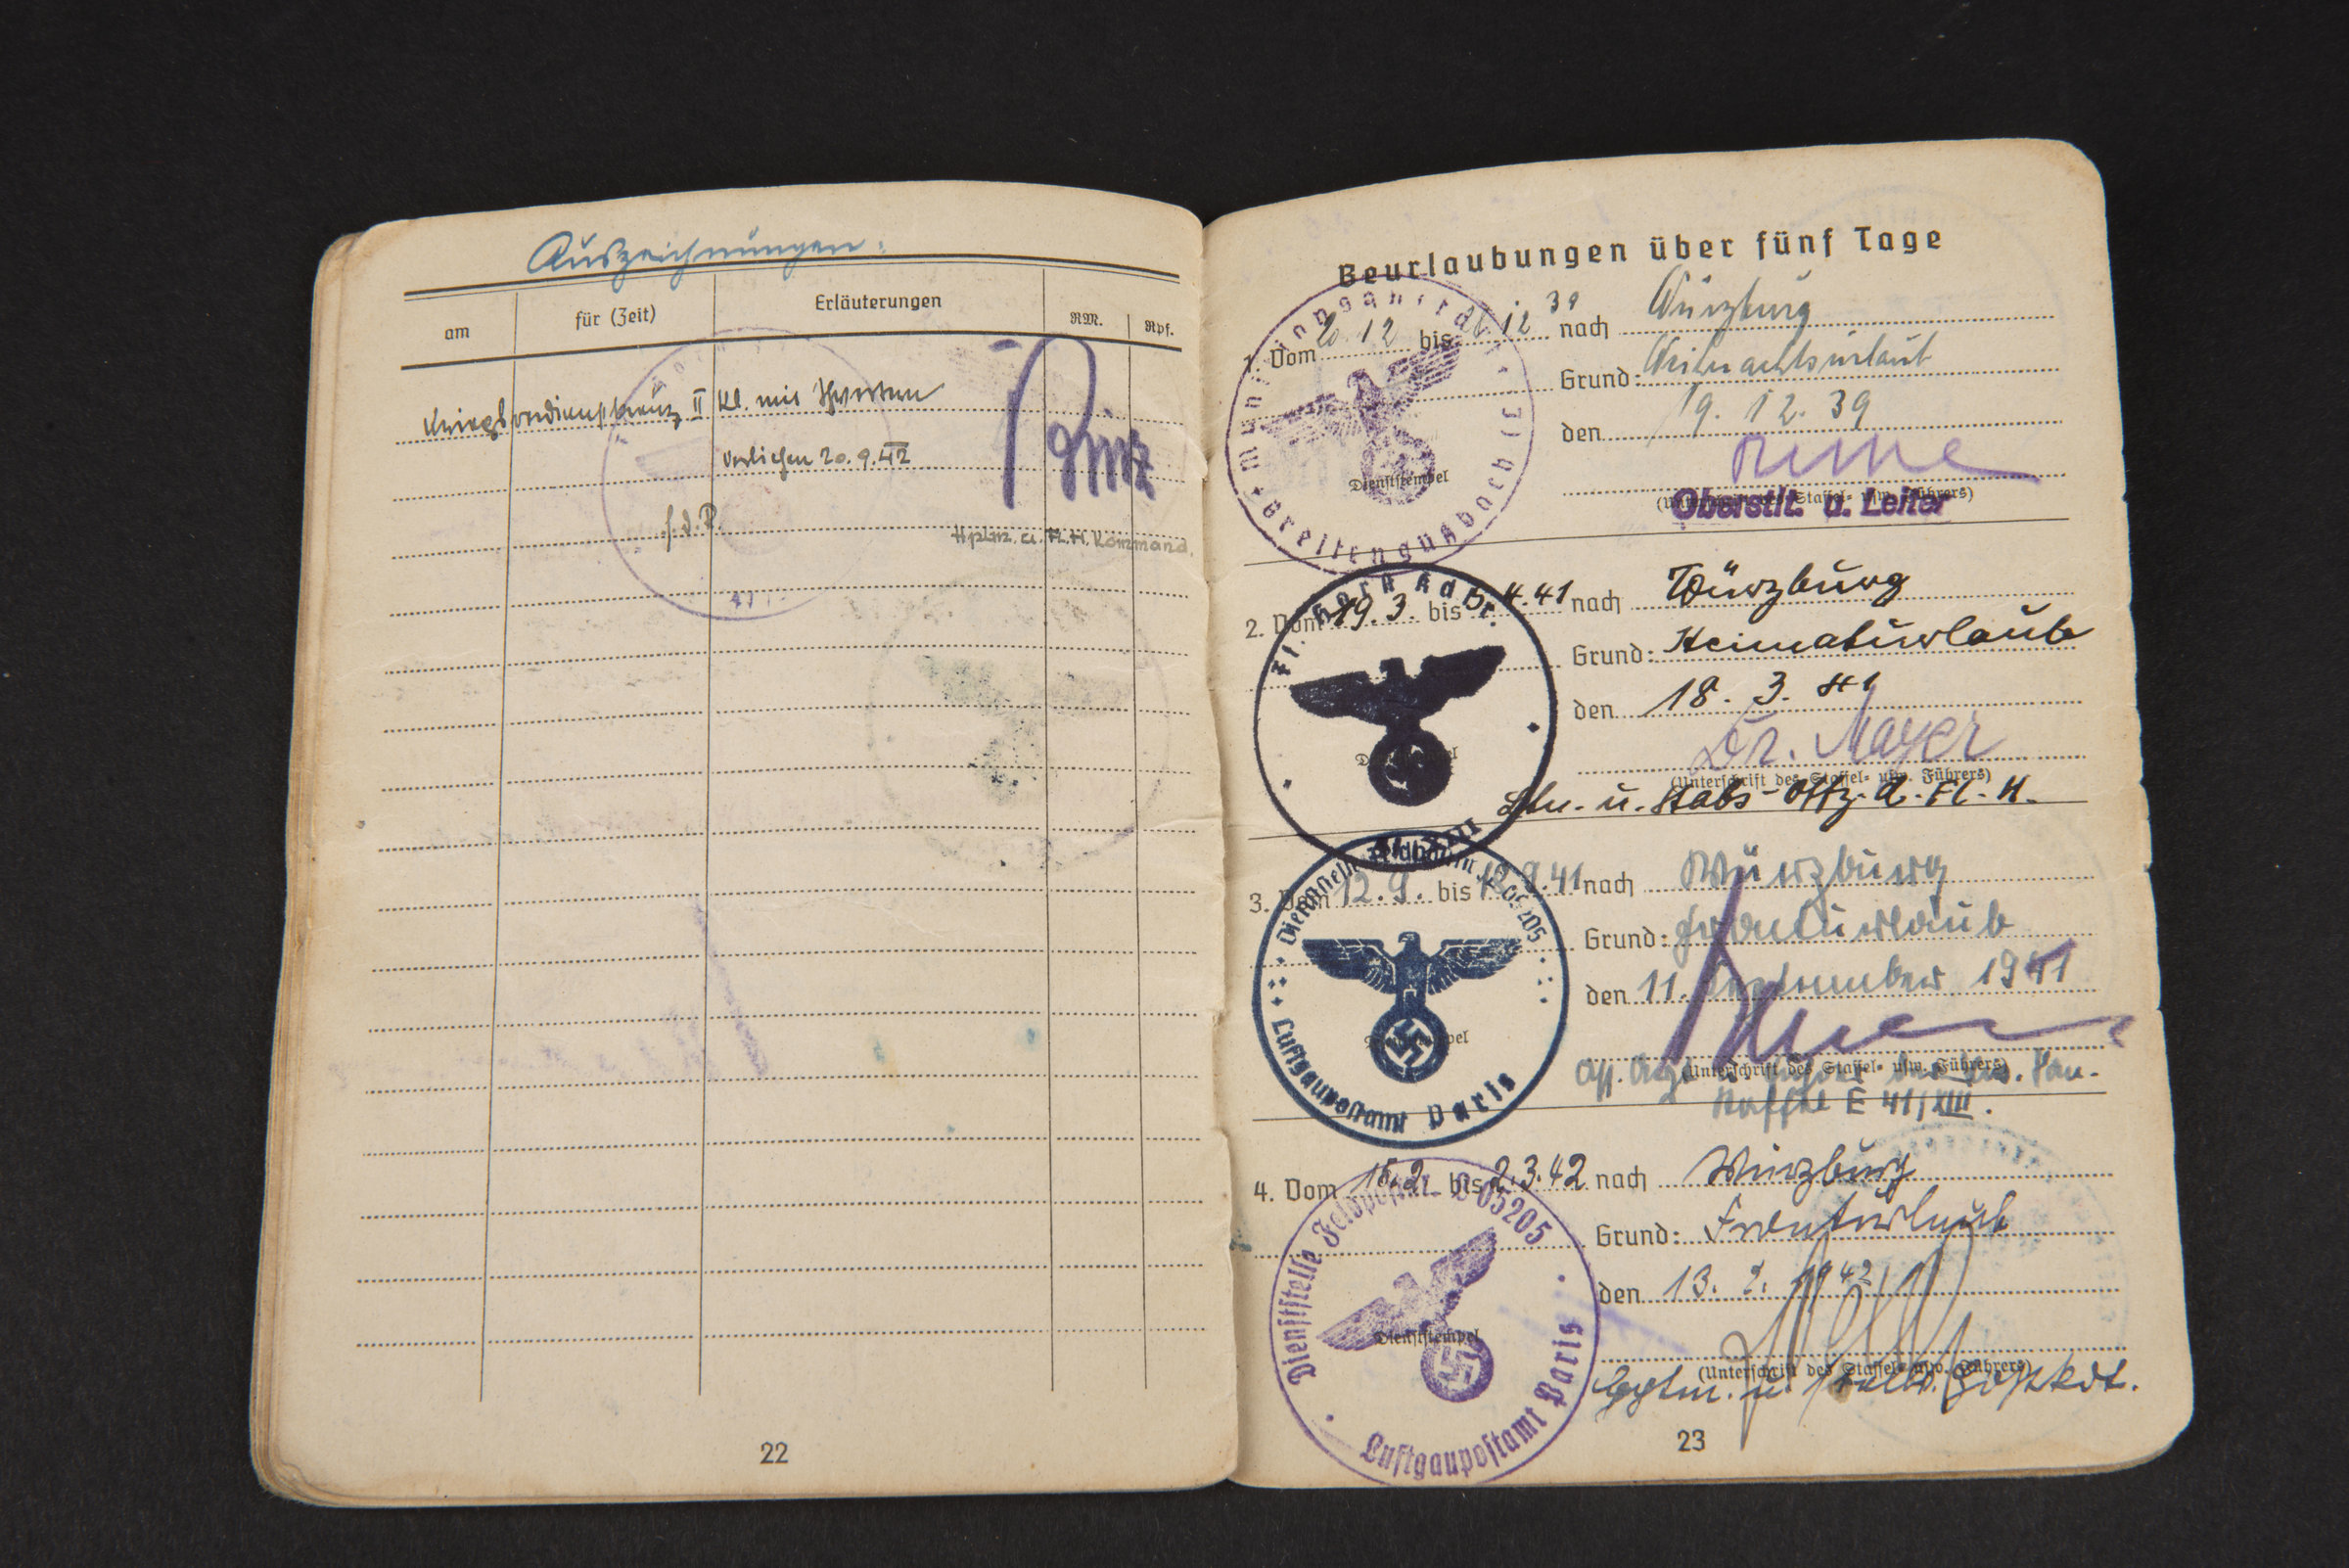 Auszeichnungen:
am für (Zeit) Erläuterungen RM. Rpf.
Kriegsverdienstkreuz II Kl. mit Schwertern
verliehen 20.9.42
f.d.R.
Hptm. u. Fl.H. Kommand.
22
Beurlaubungen über fünf Tage
1. Vom 20.12 bis 12 39 nach Würzburg
Grund: Weihnachtsurlaub
den 19.12.39
Dienststempel
(Unterschrift des Staffel- usw. Führers)
Oberstlt. u. Leiter
Breitengüßbach
2. Vom 19.3. bis 5.4.41 nach Würzburg
Grund: Heimaturlaub
den 18.3.41
Dr. Mayer
(Unterschrift des Staffel- usw. Führers)
Ltn. u. Stabs-Offz. d. Fl. H.
3. Vom 12.9. bis 9.41 nach Würzburg
Grund: Fronturlaub
den 11. September 1941
(Unterschrift des Staffel- usw. Führers)
E 41/XIII.
Dienststelle 05205
Luftgaupostamt Paris
4. Vom 15.2. bis 2.3.42 nach Würzburg
Grund: Fronturlaub
den 13.2.1942
Dienststempel
(Unterschrift des Staffel- usw. Führers)
Hptm. u.
Dienststelle Feldpost 05205
Luftgaupostamt Paris
23